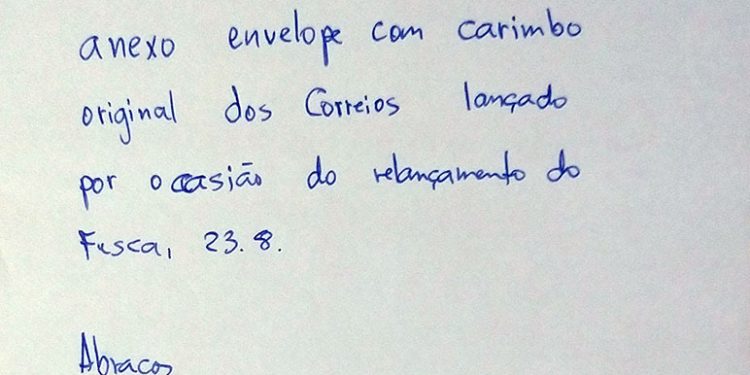 anexo envelope com carimbo
original dos Correios lançado
por occasião do relançamento do
Fusca, 23.8.
Abraços